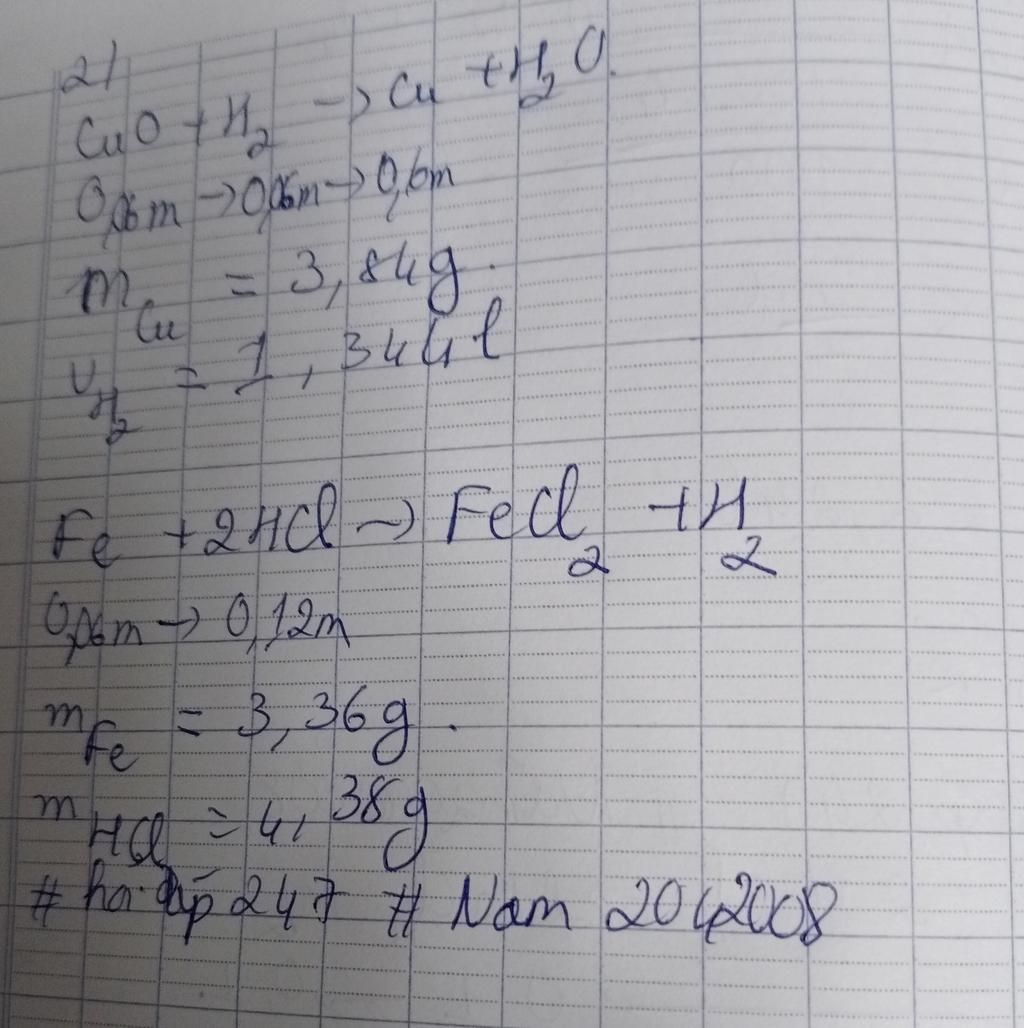 2/
CuO + H2 -> Cu + H2O.
0,06m -> 0,06m -> 0,6m
mCu = 3,84g.
VH2 = 1,344l
Fe + 2HCl -> FeCl2 + H2
0,06m -> 0,12m
mFe = 3,36g.
mHCl = 4,38g
# hoi đáp 247 # Nam 2042008